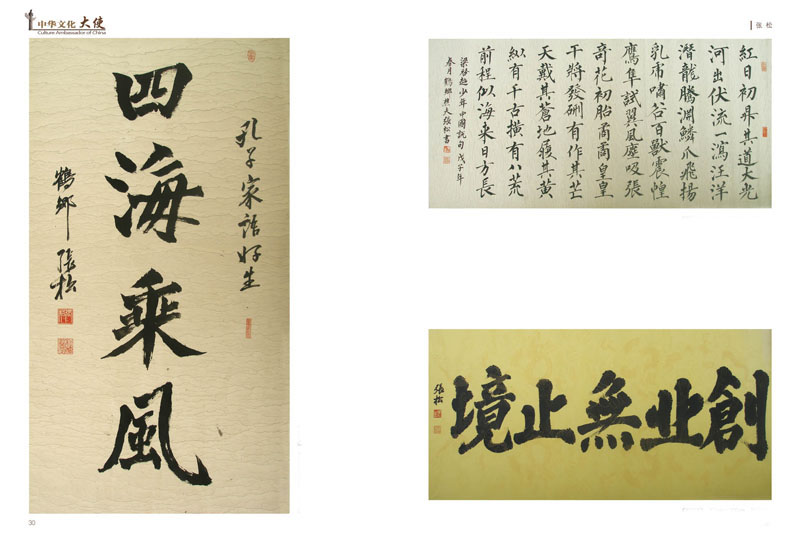 中华文化大使
Culture Ambassador of China
张 松
孔子家语好生
四海乘風
鶴鄉 張松
紅日初昇其道大光
河出伏流一瀉汪洋
潛龍騰淵鱗爪飛揚
乳虎嘯谷百獸震惶
鷹隼試翼風塵吸張
奇花初胎矞矞皇皇
干將發硎有作其芒
天戴其蒼地履其黃
纵有千古橫有八荒
前程似海來日方長
梁啓超少年中國説句 戊子年
春月鶴鄉 張松書
創业無止境
張松
30